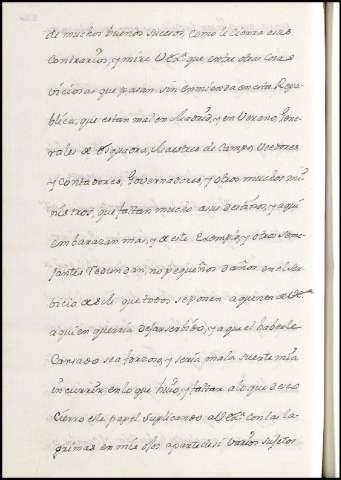 de muchos buenos sucesos, como le cierra a los
contrarios, y mire V.Exª. que entre otras cosas
viciosas que pasan sin enmienda en esta Repu-
blica, que estan mal en Madrid, y en Verano, Gene-
rales de Esquadra, Maestres de Campo, Veedores,
y Contadores, Governadores, y otros muchos mi-
nistros, que faltan mucho a sus destinos, y aqui
embarazan mas, y de este Exemplo, y otros seme-
jantes redundan, no pequeños daños en el ser-
bicio de que todos se ponen a quien es V.Exª.
a quien querria dejar serbido, y a que el haberle
Cansado sea forzoso, y seria mala suerte mia
incurrir en lo que huio, y faltar a lo que deseo
Cierro este papel Suplicando a V.Exª. con las la-
grimas en mis ojos aparte de si varios sujetos